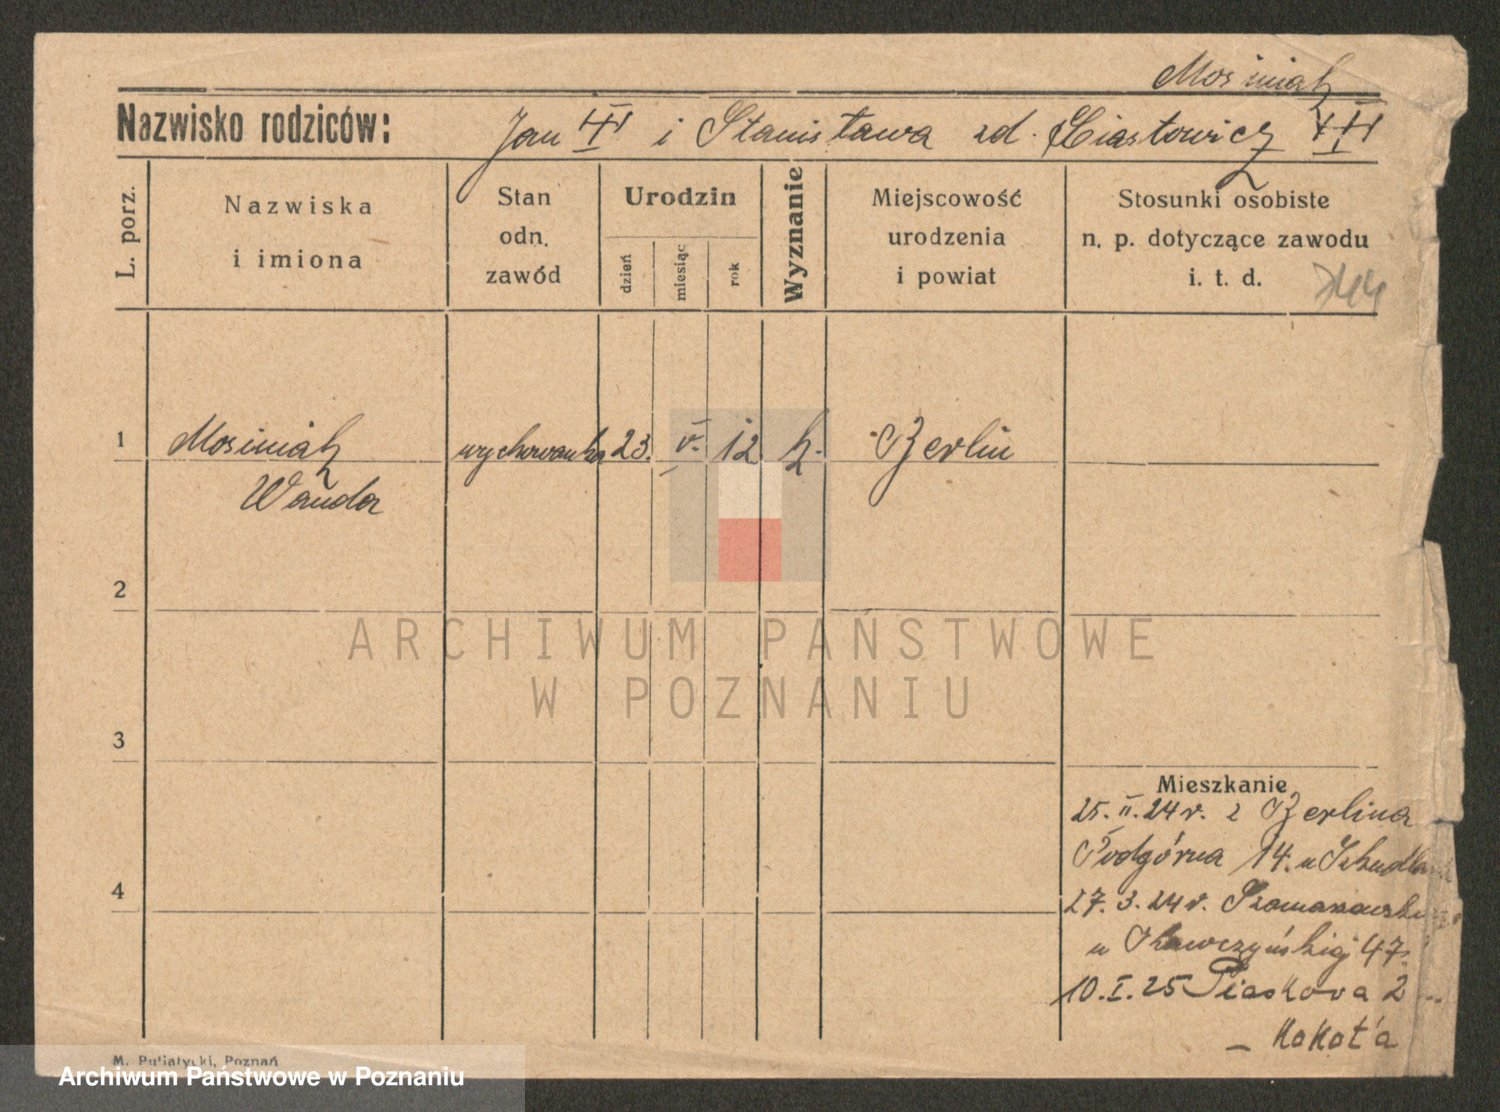 Mosiniak
Nazwisko rodziców: Jan i Stanisława zd.
L. porz.
Nazwiska
i imiona
Stan
odn.
zawód
Urodzin
dzień
miesiąc
rok
Wyznanie
Miejscowość
urodzenia
i powiat
Stosunki osobiste
n. p. dotyczące zawodu
i. t. d.
1 Mosiniak wychowanka 23. V. 12 k. Berlin
Wanda
2
ARCHIWUM PAŃSTWOWE
W POZNANIU
3
Mieszkanie
25. II. 24 r. z Berlina
Podgórna 14. u
4
27. 3. 24 r.
u 47.
10. I. 25 Piaskova 2
— Kokot'a
M. Putiatycki, Poznań
Archiwum Państwowe w Poznaniu